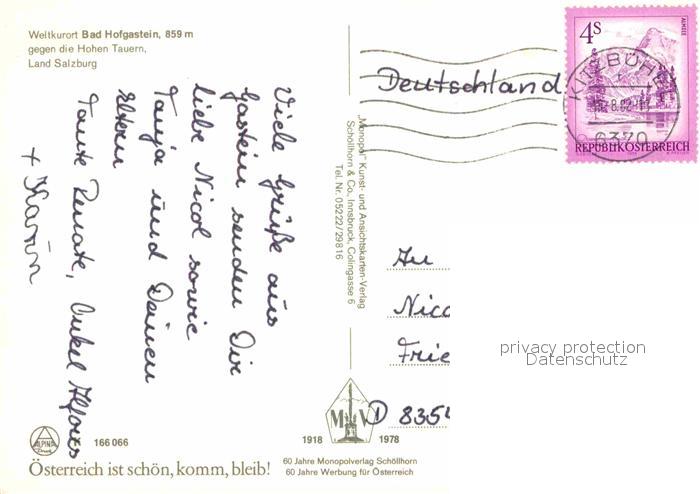 Weltkurort Bad Hofgastein, 859 m
gegen die Hohen Tauern,
Land Salzburg
Viele Grüße aus
Gastein senden Dir
liebe Nicol sowie
Tanja und Deinen
Eltern
Tante Renate, Onkel Alfons
+ Karin
"Monopol" Kunst- und Ansichtskarten-Verlag
Schöllhorn & Co., Innsbruck, Colingasse 6
Tel. Nr. 05222/29816
Deutschland
4S
ALMSEE
KITZBÜHEL
6370
REPUBLIK ÖSTERREICH
An
Nico
Frie
privacy protection
Datenschutz
D 8354
M V
1918 1978
ALPINA
Druck
166 066
Österreich ist schön, komm, bleib!
60 Jahre Monopolverlag Schöllhorn
60 Jahre Werbung für Österreich